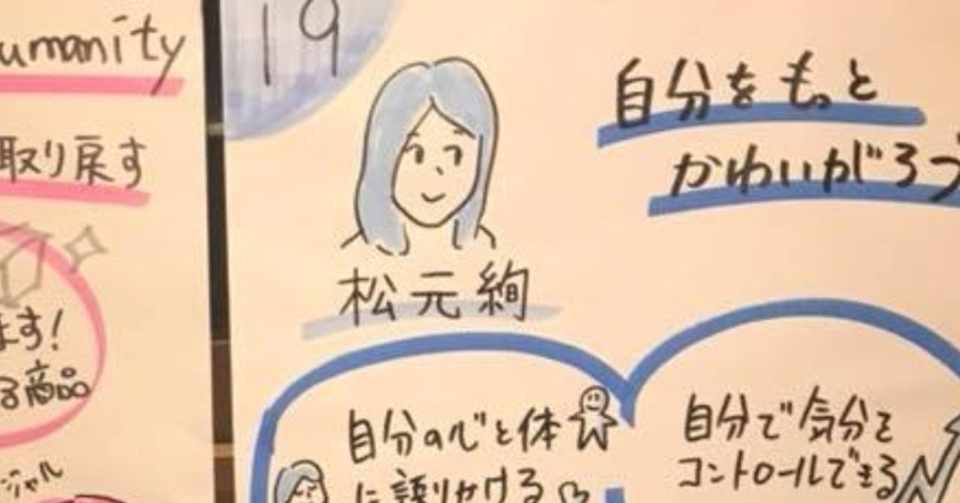 umanity
取り戻す
ます!
る商品
ジャル
19
自分をもっと
かわいがろう
松元絢
自分の心と体
に語りかける
自分で気分を
コントロールできる